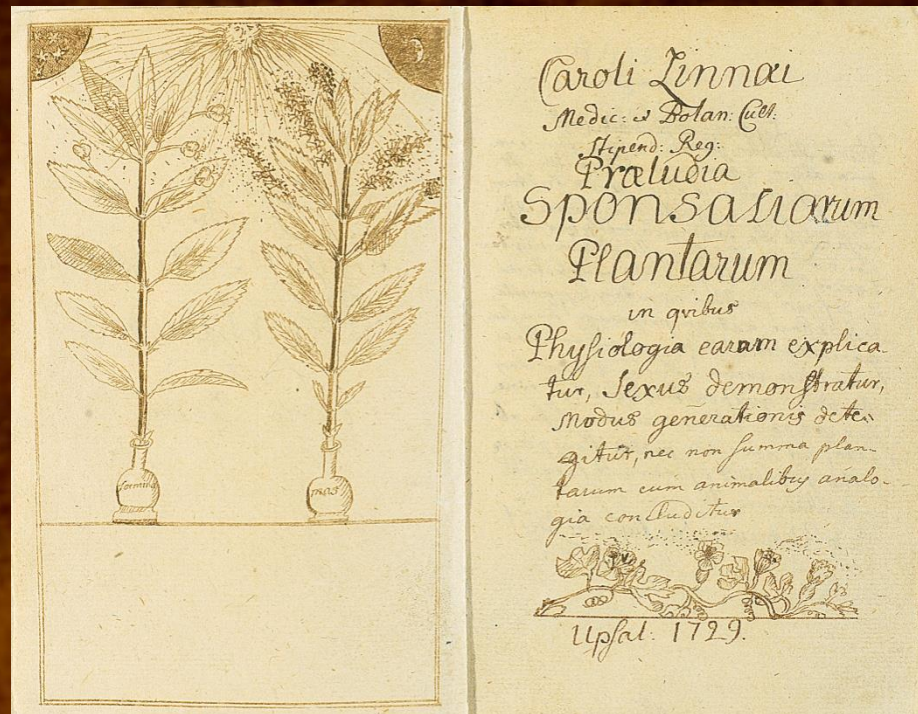 foemina
mas
Caroli Linnæi
Medic: & Botan. Cult:
Stipend: Reg:
Præludia
Sponsaliarum
Plantarum
in qvibus
Physiologia earum explica-
tur, Sexus demonstratur,
Modus generationis dete-
gitur, nec non summa plan-
tarum cum animalibus analo-
gia concluditur
Upsal: 1729.